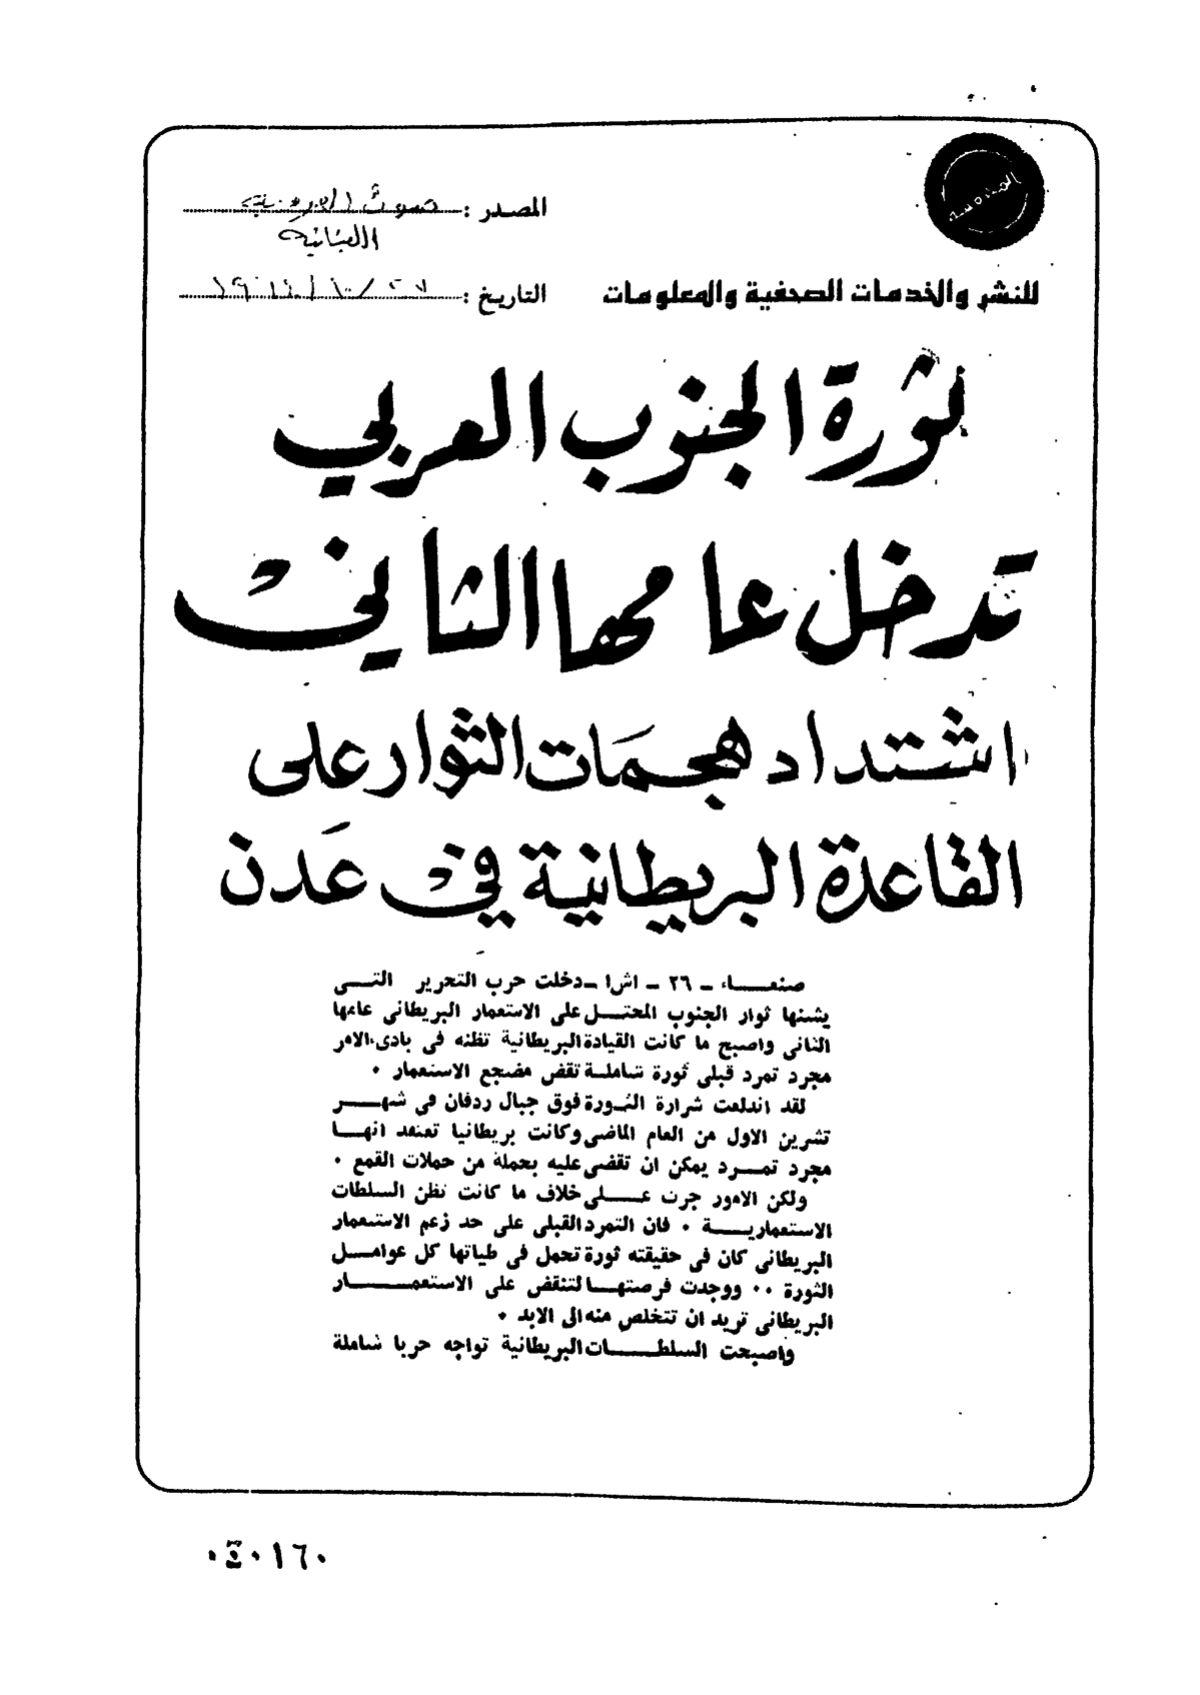 المصدر : صوت العروبة
اللبنانية
للنشر والخدمات الصحفية والمعلومات
التاريخ :
ثورة الجنوب العربي
تدخل عامها الثاني
اشتداد هجمات الثوار على
القاعدة البريطانية في عدن
صنعـــاء ـ ٢٦ ـ اشا ـ دخلت حرب التحرير التـــي
يشنها ثوار الجنوب المحتـــل على الاستعمار البريطانى عامها
الثانى واصبح ما كانت القيادة البريطانية تظنه فى بادىء الامر
مجرد تمرد قبلى ثورة شاملـة تقض مضجع الاستعمار ٠
لقد اندلعت شرارة الثـورة فوق جبال ردفان فى شهـــر
تشرين الاول من العام الماضى وكانت بريطانيا تعتقد انهـــا
مجرد تمـــرد يمكن ان تقضى عليه بحملة من حملات القمع ٠
ولكن الامور جرت عـــلى خلاف ما كانت تظن السلطات
الاستعماريـــة ٠ فان التمرد القبلى على حد زعم الاستعمار
البريطانى كان فى حقيقته ثورة تحمل فى طياتها كل عوامـــل
الثورة ٠٠ ووجدت فرصتهـــا لتنقض على الاستعمـــار
البريطانى تريد ان تتخلص منه الى الابد ٠
واصبحت السلطـــات البريطانية تواجه حربا شاملة